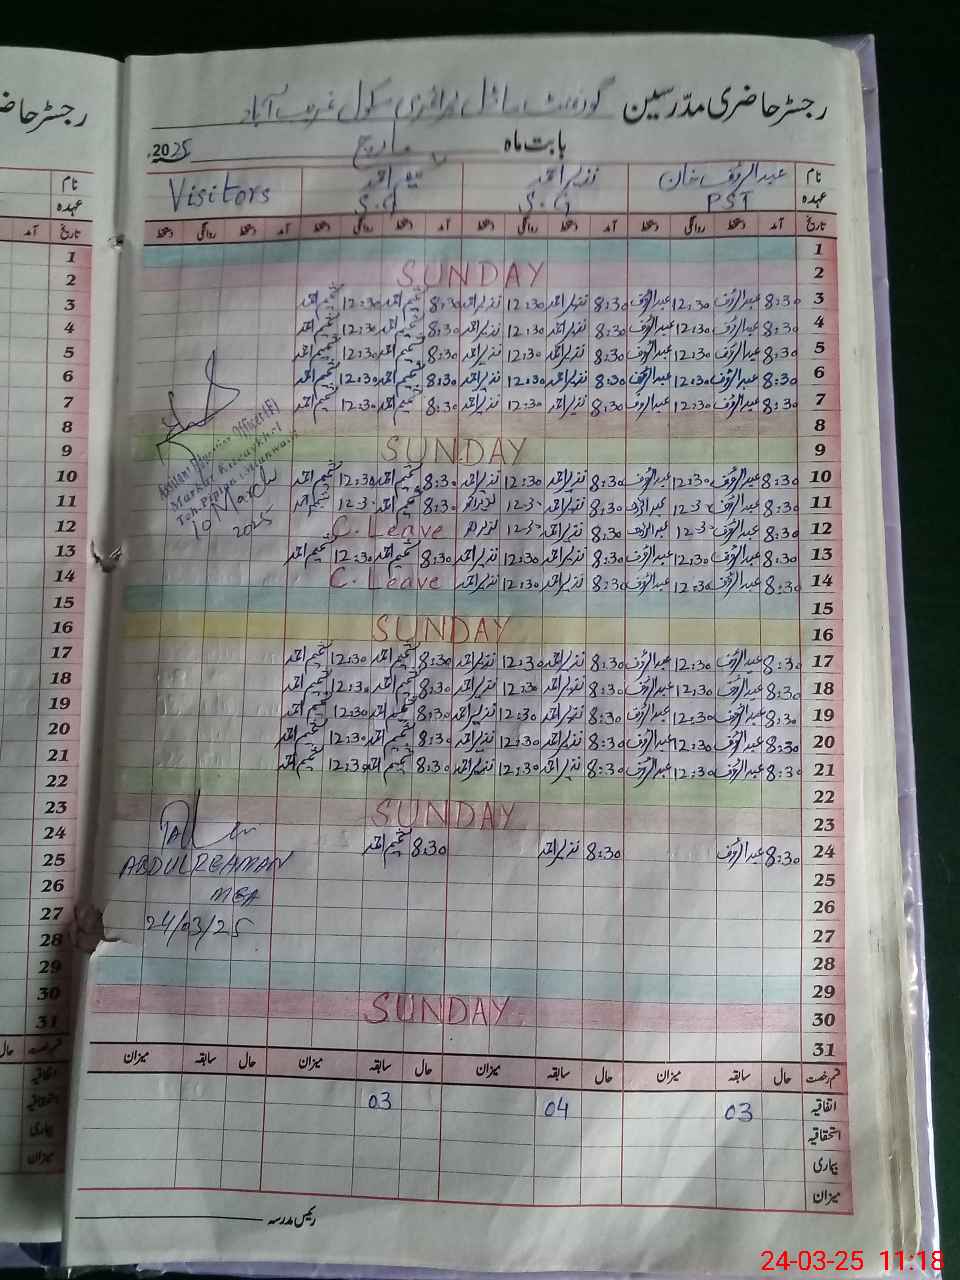 رجسٹر حاضری مدرسین گورنمنٹ ماڈل پرائمری سکول غریب آباد
بابت ماہ مارچ 2025
نام عبدالرؤف خان نذیر احمد شمیم احمد Visitors
عہدہ PST
تاریخ آمد دستخط روانگی دستخط آمد دستخط روانگی دستخط آمد دستخط روانگی دستخط آمد دستخط روانگی دستخط
1
2 SUNDAY
3 8:30 عبدالرؤف 12:30 عبدالرؤف 8:30 نذیر احمد 12:30 نذیر احمد 8:30 شمیم احمد 12:30 شمیم احمد
4 8:30 عبدالرؤف 12:30 عبدالرؤف 8:30 نذیر احمد 12:30 نذیر احمد 8:30 شمیم احمد 12:30 شمیم احمد
5 8:30 عبدالرؤف 12:30 عبدالرؤف 8:30 نذیر احمد 12:30 نذیر احمد 8:30 شمیم احمد 12:30 شمیم احمد
6 8:30 عبدالرؤف 12:30 عبدالرؤف 8:30 نذیر احمد 12:30 نذیر احمد 8:30 شمیم احمد 12:30 شمیم احمد
7 8:30 عبدالرؤف 12:30 عبدالرؤف 8:30 نذیر احمد 12:30 نذیر احمد 8:30 شمیم احمد 12:30 شمیم احمد
8
9 SUNDAY
10 8:30 عبدالرؤف 12:30 عبدالرؤف 8:30 نذیر احمد 12:30 نذیر احمد 8:30 شمیم احمد 12:30 شمیم احمد
11 8:30 عبدالرؤف 12:30 عبدالرؤف 8:30 نذیر احمد 12:30 نذیر احمد 8:30 شمیم احمد 12:30 شمیم احمد
12 8:30 عبدالرؤف 12:30 عبدالرؤف 8:30 نذیر احمد 12:30 نذیر احمد C. Leave
13 8:30 عبدالرؤف 12:30 عبدالرؤف 8:30 نذیر احمد 12:30 نذیر احمد 8:30 شمیم احمد 12:30 شمیم احمد
14 8:30 عبدالرؤف 12:30 عبدالرؤف 8:30 نذیر احمد 12:30 نذیر احمد C. Leave
15
16 SUNDAY
17 8:30 عبدالرؤف 12:30 عبدالرؤف 8:30 نذیر احمد 12:30 نذیر احمد 8:30 شمیم احمد 12:30 شمیم احمد
18 8:30 عبدالرؤف 12:30 عبدالرؤف 8:30 نذیر احمد 12:30 نذیر احمد 8:30 شمیم احمد 12:30 شمیم احمد
19 8:30 عبدالرؤف 12:30 عبدالرؤف 8:30 نذیر احمد 12:30 نذیر احمد 8:30 شمیم احمد 12:30 شمیم احمد
20 8:30 عبدالرؤف 12:30 عبدالرؤف 8:30 نذیر احمد 12:30 نذیر احمد 8:30 شمیم احمد 12:30 شمیم احمد
21 8:30 عبدالرؤف 12:30 عبدالرؤف 8:30 نذیر احمد 12:30 نذیر احمد 8:30 شمیم احمد 12:30 شمیم احمد
22
23 SUNDAY
24 8:30 عبدالرؤف 8:30 نذیر احمد 8:30 شمیم احمد
25
26
27
28
29
30 SUNDAY
31
Officer
Markaz
Teh. Piplan Mianwali
10 March
2025
ABDUL REHMAN
MEA
24/03/25
قسم رخصت حال سابقہ میزان حال سابقہ میزان حال سابقہ میزان حال سابقہ میزان
اتفاقیہ 03 04 03
استحقاقیہ
بیماری
میزان
رئیس مدرسہ
رجسٹر حاضری
نام
عہدہ
تاریخ آمد
1
2
3
4
5
6
7
8
9
10
11
12
13
14
15
16
17
18
19
20
21
22
23
24
25
26
27
28
29
30
31
قسم رخصت حال
اتفاقیہ
استحقاقیہ
بیماری
میزان
24-03-25 11:18